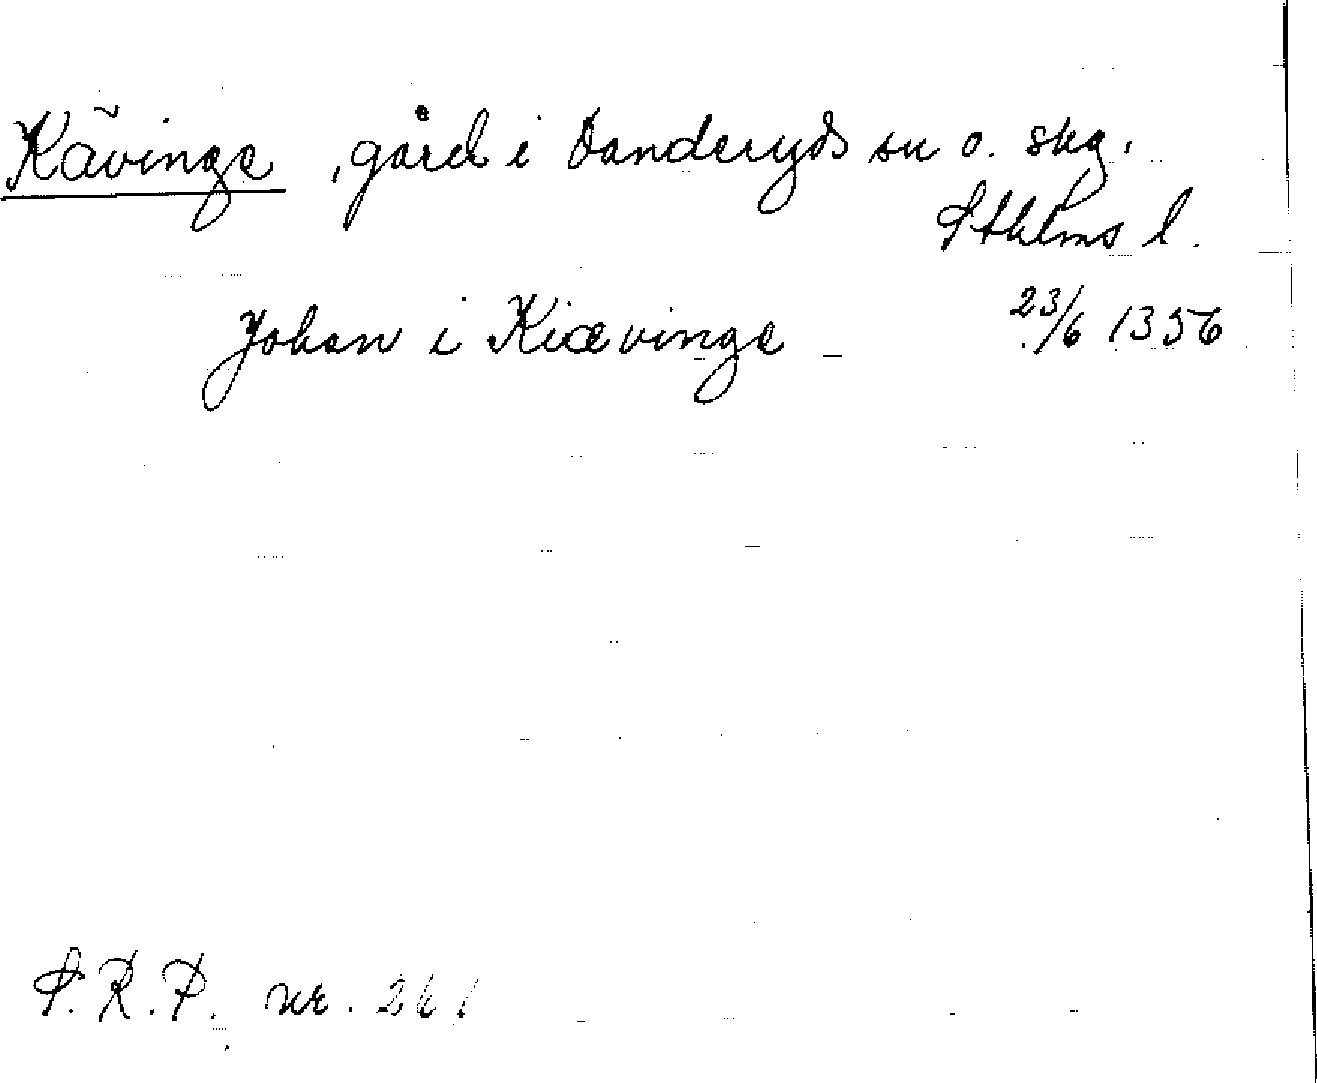 Kävinge, gård i Danderyds sn o. skg.
Sthlms l.
Johan i Kiævinge 23/6 1356
S.R.P. nr. 261